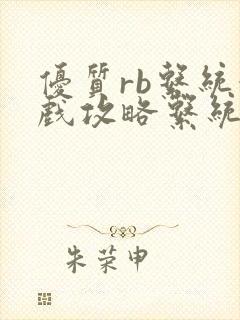 優質rb繫統
戲攻略繫統
朱荣申